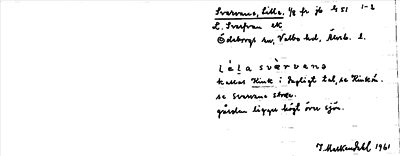 Svarvena, Lilla, 1/8 fr jb b 51 1-2
L. Svarfvan EK
Ödeborgs sn, Valbo hd, Älvsb. l.
lɩ̀la svàrvena
kallas Kink i dagligt tal, se Kinkön.
se Svarvena stora.
gården ligger högt över sjön.
1961